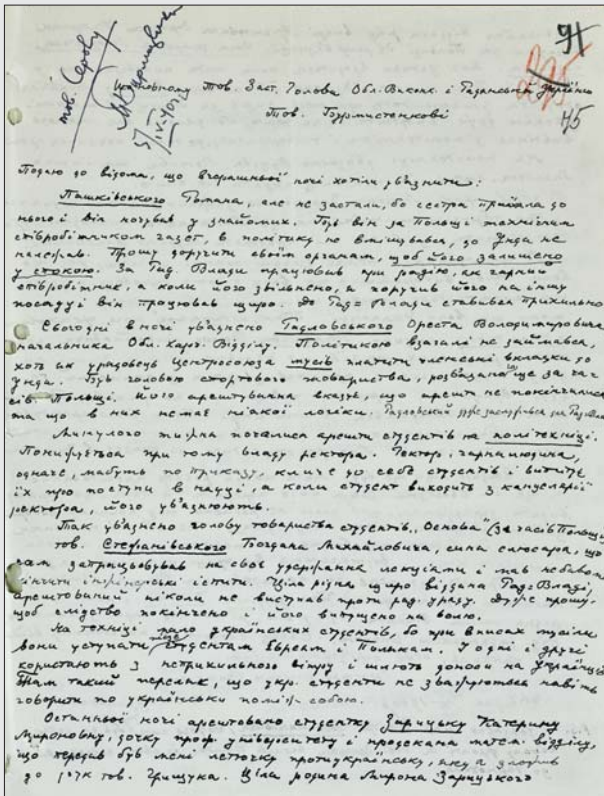 тов. Сєрову
5/IV-40
91
Шановному Тов. Заст. Голови Обл. Виконк. і Радянської України
Тов. Бурмистенкові
Подаю до відома, що вчорашньої ночі хотіли ув'язнити:
Пашківського Романа, але не застали, бо сестра приїхала до
нього і він ночував у знайомих. Був він за Польщі технічним
співробітником газет, в політику не вмішувався, до Унда не
належав. Прошу доручити своїм органам, щоб його залишено
у спокою. За Рад. Влади працював при радіо, як гарний
співробітник, а коли його звільнено, я поручив його на іншу
посаду і він працював щиро. До Рад. Влади ставився прихильно
Сьогодні в ночі ув'язнено Радловського Ореста Володимировича
начальника Обл. Харч. Відділу. Політикою взагалі не займався,
хоть як урядовець Центросоюза мусів платити членські вкладки до
Унда. Був головою спортового товариства, розв'язаного ще за час
сів Польщі. Його арештування вказує, що арешти не покінчились
та що в них немає ніякої логіки.
Минулого тижня почалися арешти студентів на політехніці.
Понижується при тому владу ректора. Ректор, гарна людина,
одначе, мабуть по приказу, кличе до себе студентів і витягує
їх про поступи в науці, а коли студент виходить з канцелярії
ректора, його ув'язнюють.
Так ув'язнено голову товариства студентів „Основа" (за часів Польщі)
тов. Стефанівського Богдана Михайловича, сина слюсаря, що
сам запрацьовував на своє удержання лекціями і мав небавом
кінчити інженєрські іспити. Ціла рідня щиро віддана Рад. Владі,
арештований ніколи не виступав проти рад. уряду. Дуже прошу,
щоб слідство покінчено і його випущено на волю.
На техніці мало українських студентів, бо при вписах мусіли
вони уступати місце студентам Евреям і Полякам. І одні і другі
користають з неприхильного вітру і шлють доноси на Українців
Там такий переляк, що укр. студенти не зважуються навіть
говорити по українськи поміж собою.
Останньої ночі арештовано студентку Зарицьку Катерину
Мироновну, дочку проф. університету і продекана матем. відділу,
що передав був мені летючку протиукраїнську, яку я зложив
до рук тов. Грищука. Ціла родина Мирона Зарицького